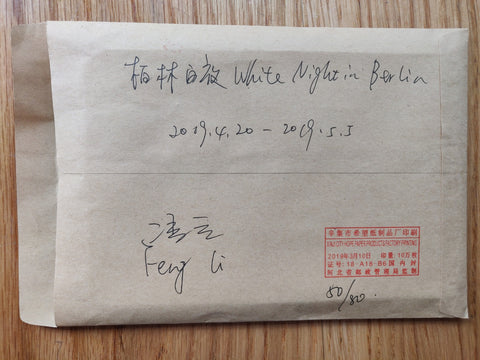 柏林白夜 White Night in Berlin
2019.4.20 - 2019.5.5
冯立
Feng Li
辛集市希望纸制品厂印刷
XINJI CITY HOPE PAPER PRODUCTS FACTORY PRINTING
2019年3月10日 印量:10万枚
证号:18-A18-B6 国内州
河北省邮政管理局监制
80/80.